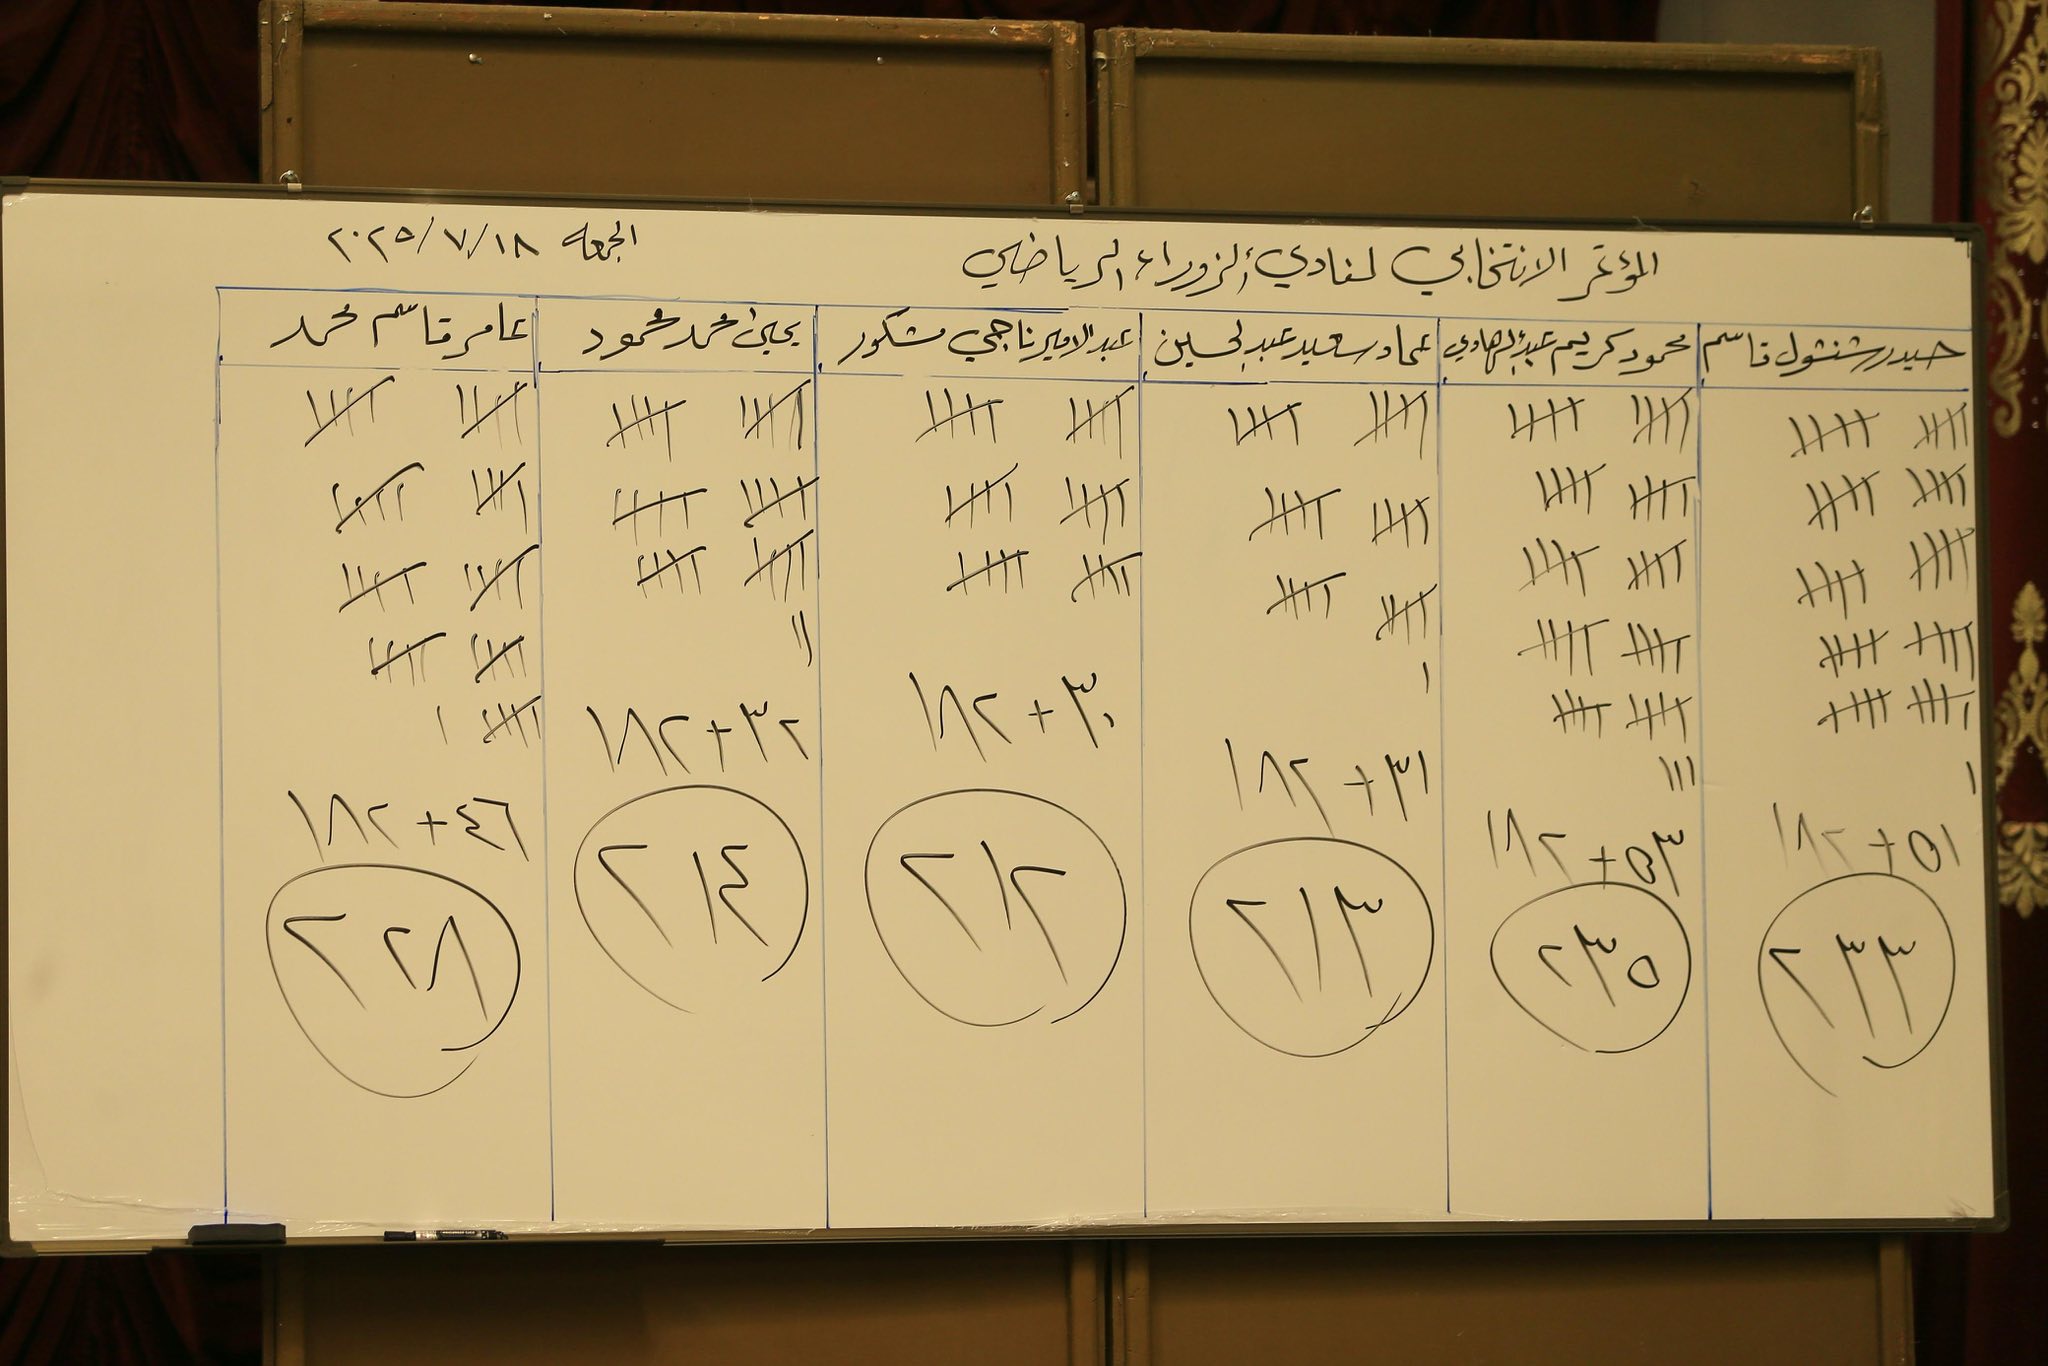 المؤتمر الانتخابي لنادي الزوراء الرياضي
الجمعه ٢٠٢٥/٧/١٨
حيدر شنشول قاسم
محمود كريم عبد الهادي
عماد سعيد عبد الحسين
عبد الامير ناجي مشكور
يحيى محمد محمود
عامر قاسم محمد
١٨٢+٥١
٢٣٣
١٨٢+٥٣
٢٣٥
١٨٢+٣١
٢١٣
١٨٢+٣٠
٢١٢
١٨٢+٣٢
٢١٤
١٨٢+٤٦
٢٢٨